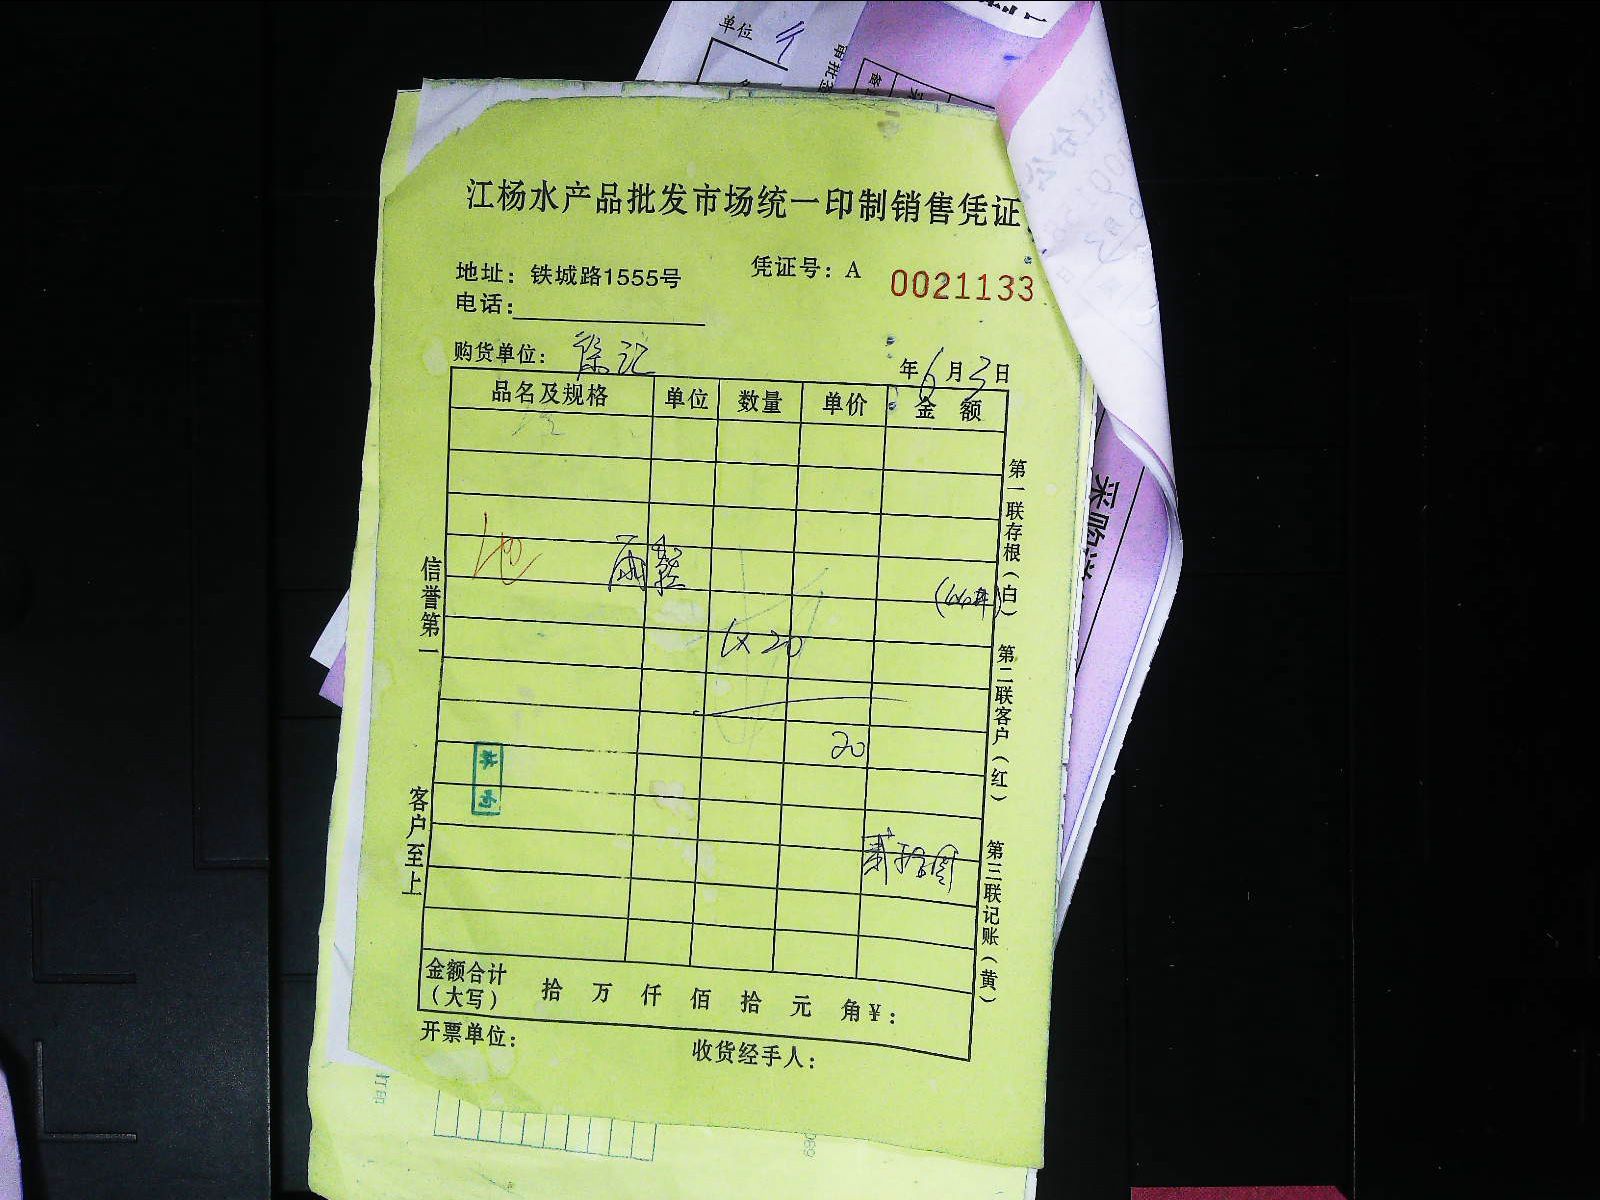 单位
江杨水产品批发市场统一印制销售凭证
地址：铁城路1555号
凭证号：A 0021133
电话：
购货单位：徐记
年6月3日
品名及规格 单位 数量 单价 金 额
1×20
20
贰拾圆
信誉第一
客户至上
第一联存根（白）
第二联客户（红）
第三联记账（黄）
金额合计
（大写）
拾 万 仟 佰 拾 元 角 ¥：
开票单位：
收货经手人：
采购